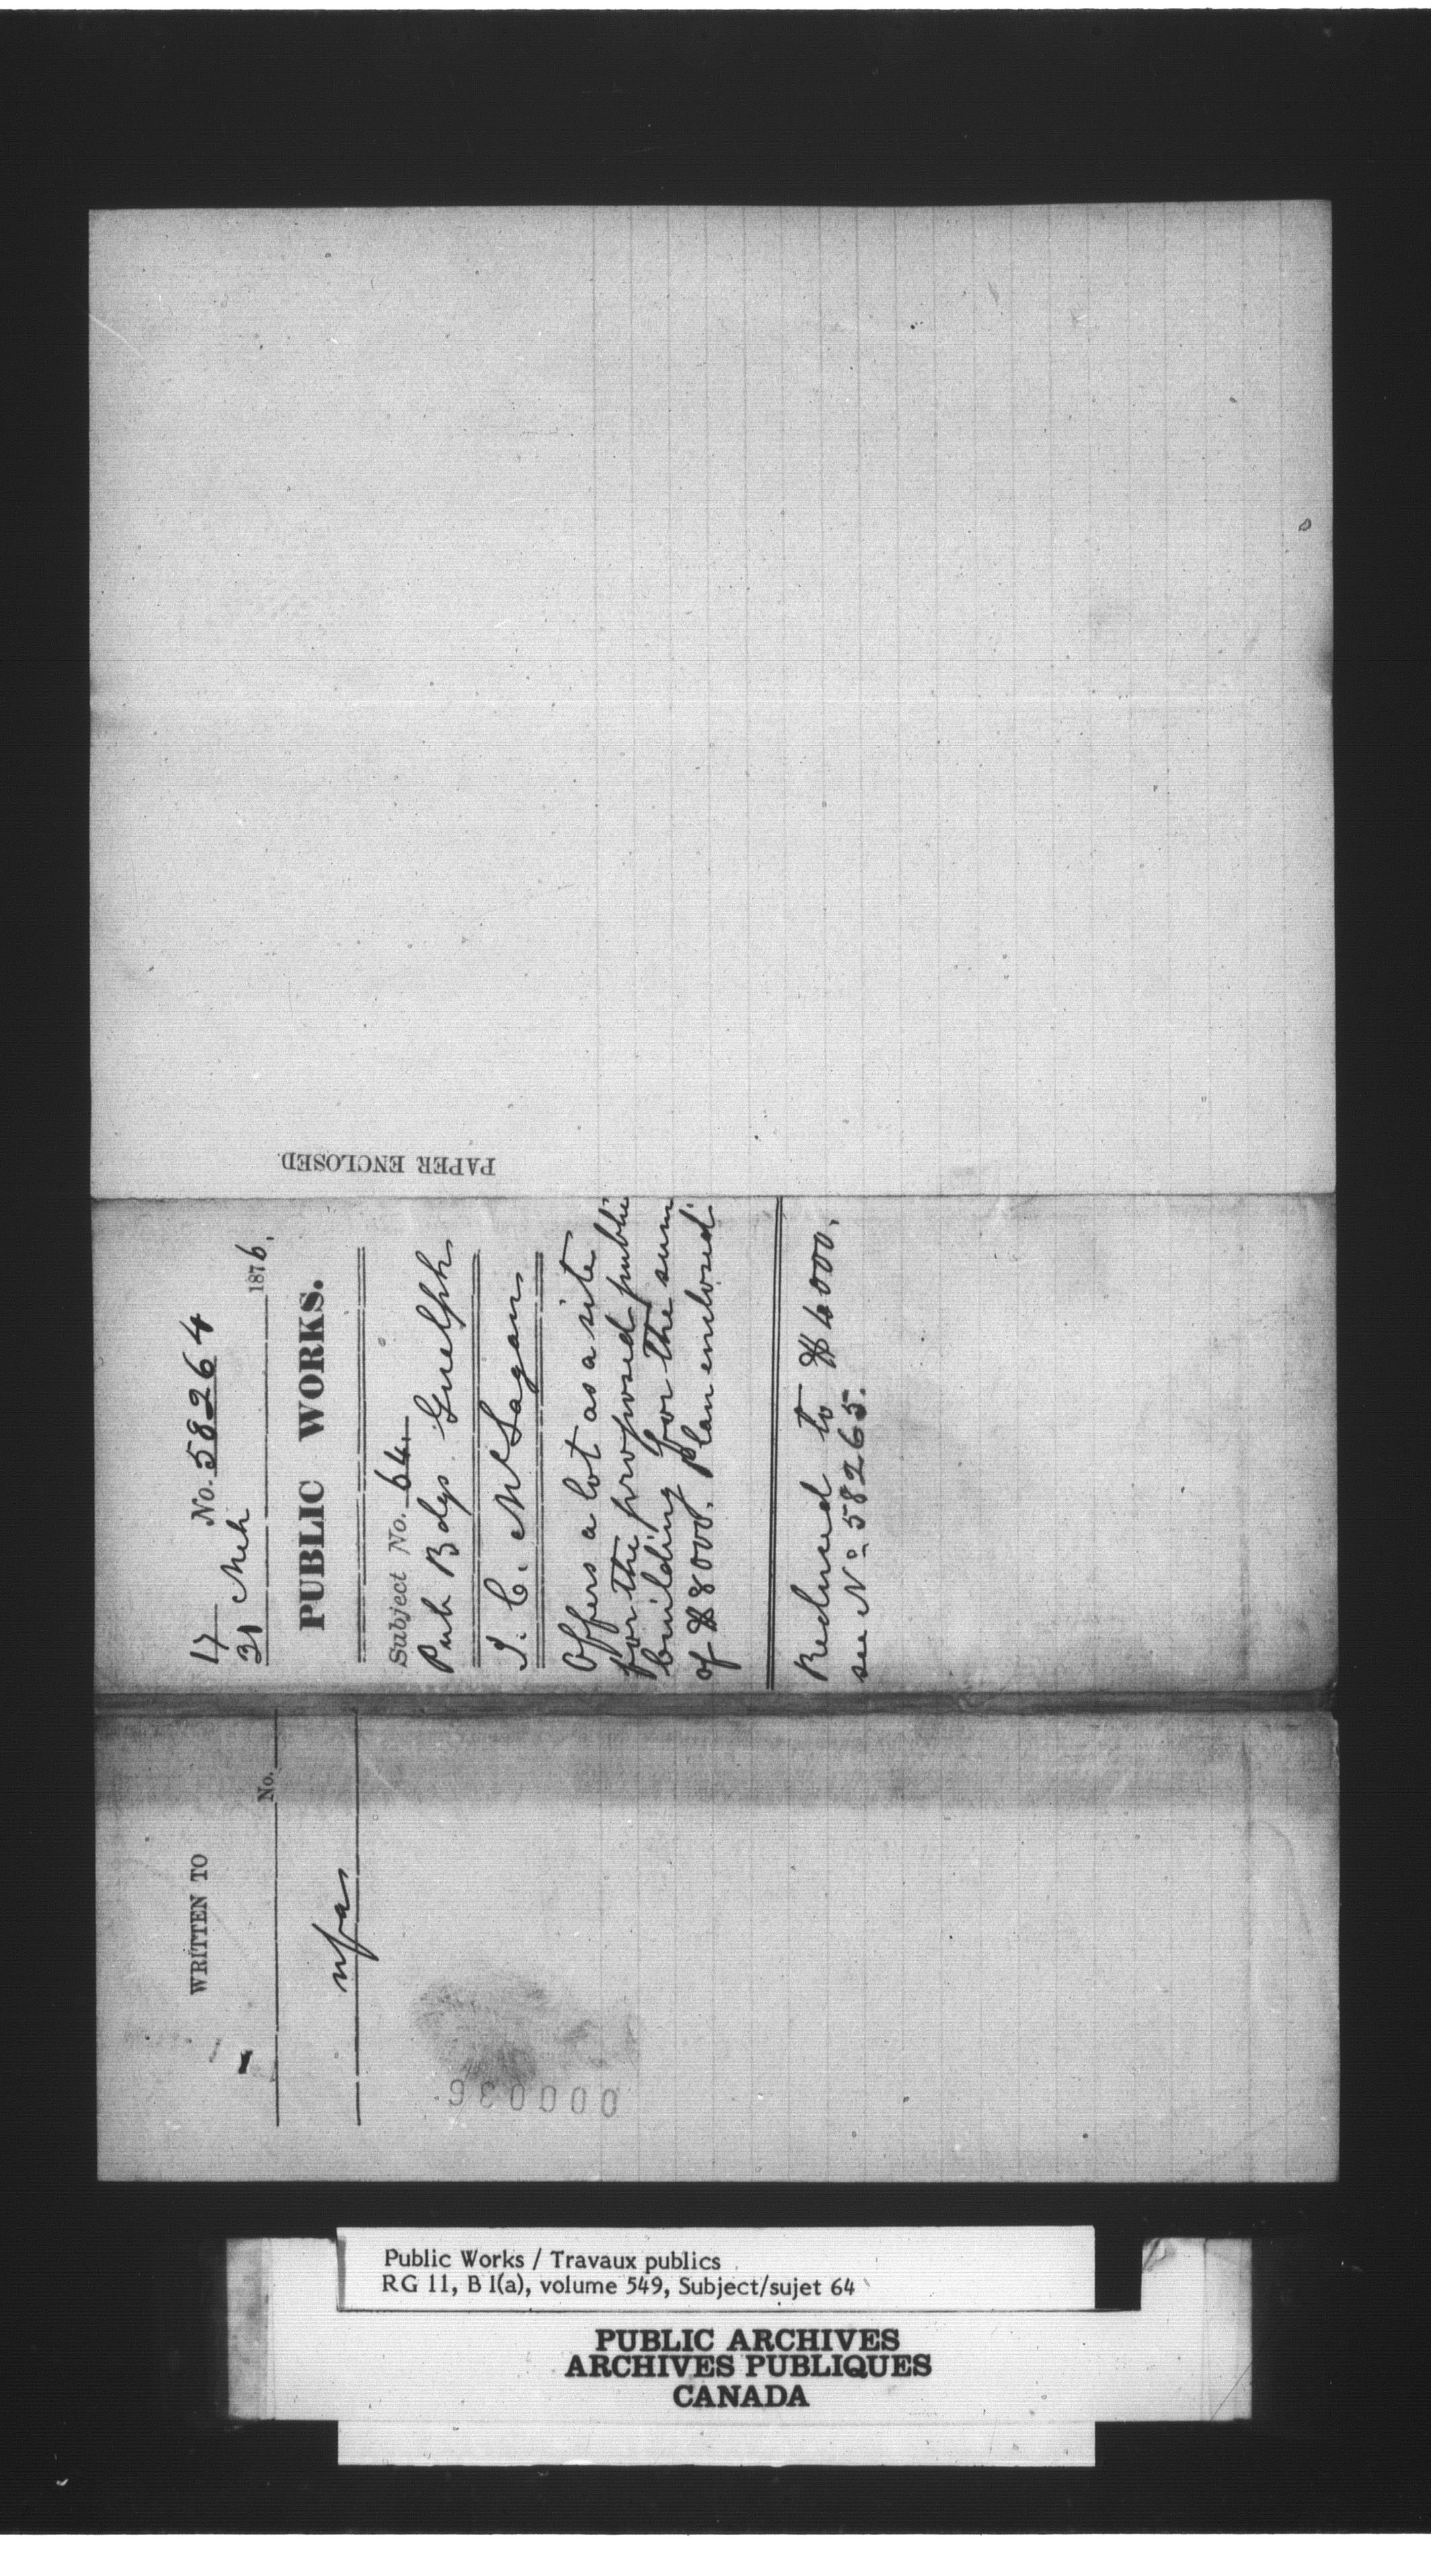 PAPER ENCLOSED.
17 No. 58264
31 Mch 1876.
PUBLIC WORKS.
Subject No. 64.
Pub Bdgs. Guelph
J. C. McLagan
Offers a lot as a site
for the proposed public
building for the sum
of $8000. Plan enclosed
Reduced to $6000.
see No. 58265.
WRITTEN TO
No.
nfa
000036
Public Works / Travaux publics
RG 11, B 1(a), volume 549, Subject/sujet 64
PUBLIC ARCHIVES
ARCHIVES PUBLIQUES
CANADA